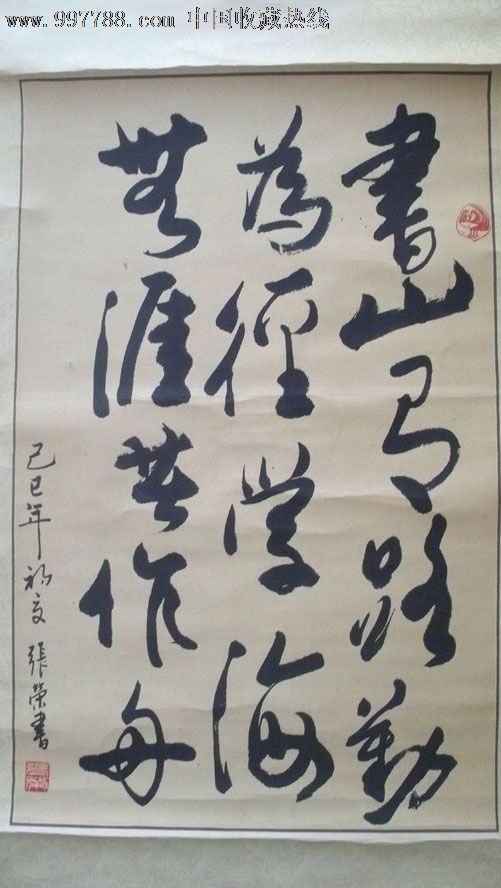 www.997788.com 中国收藏热线
書山有路勤
為徑学海
無涯苦作舟
己巳年初夏 張榮書